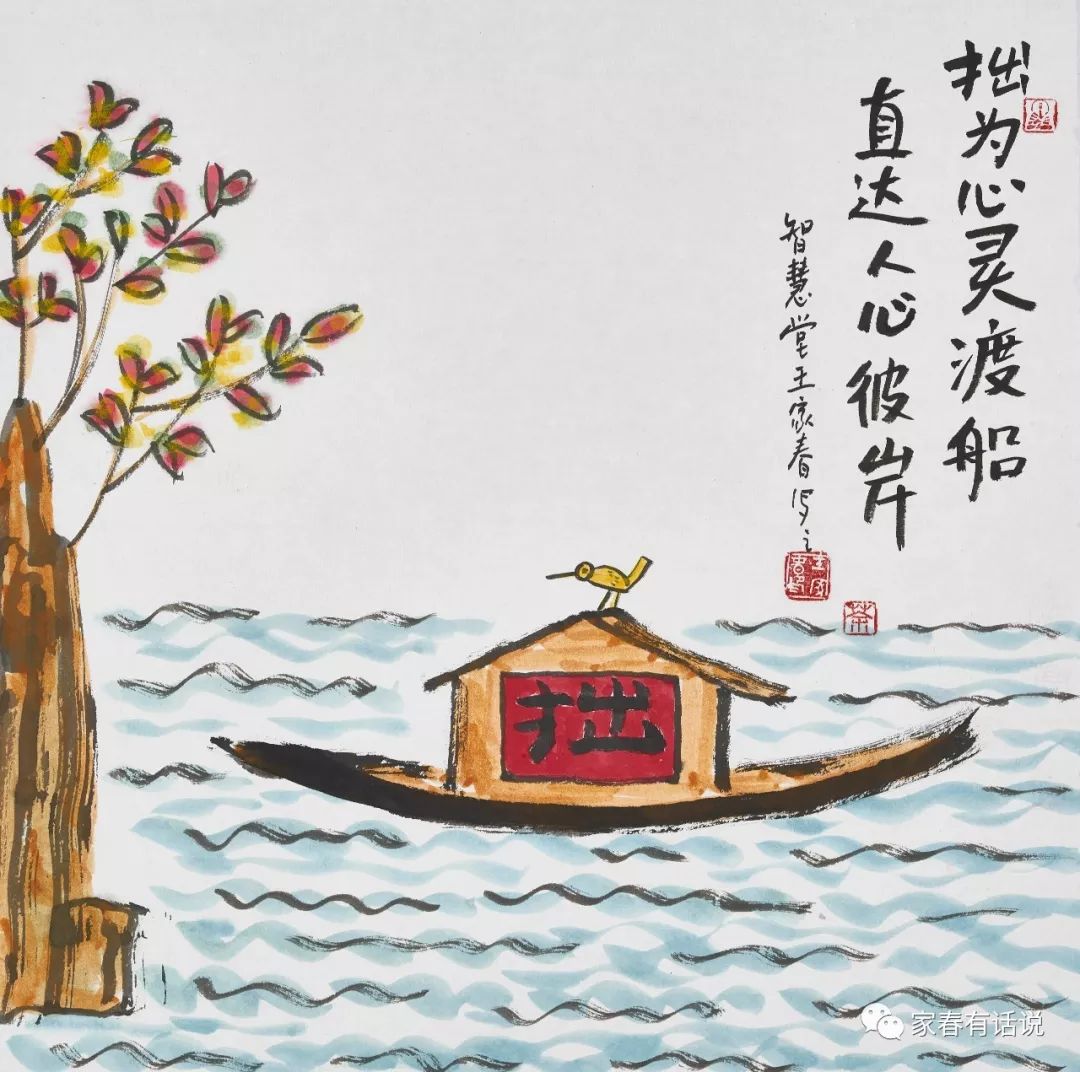 拙为心灵渡船
直达人心彼岸
智慧堂王家春写之
拙
家春有话说